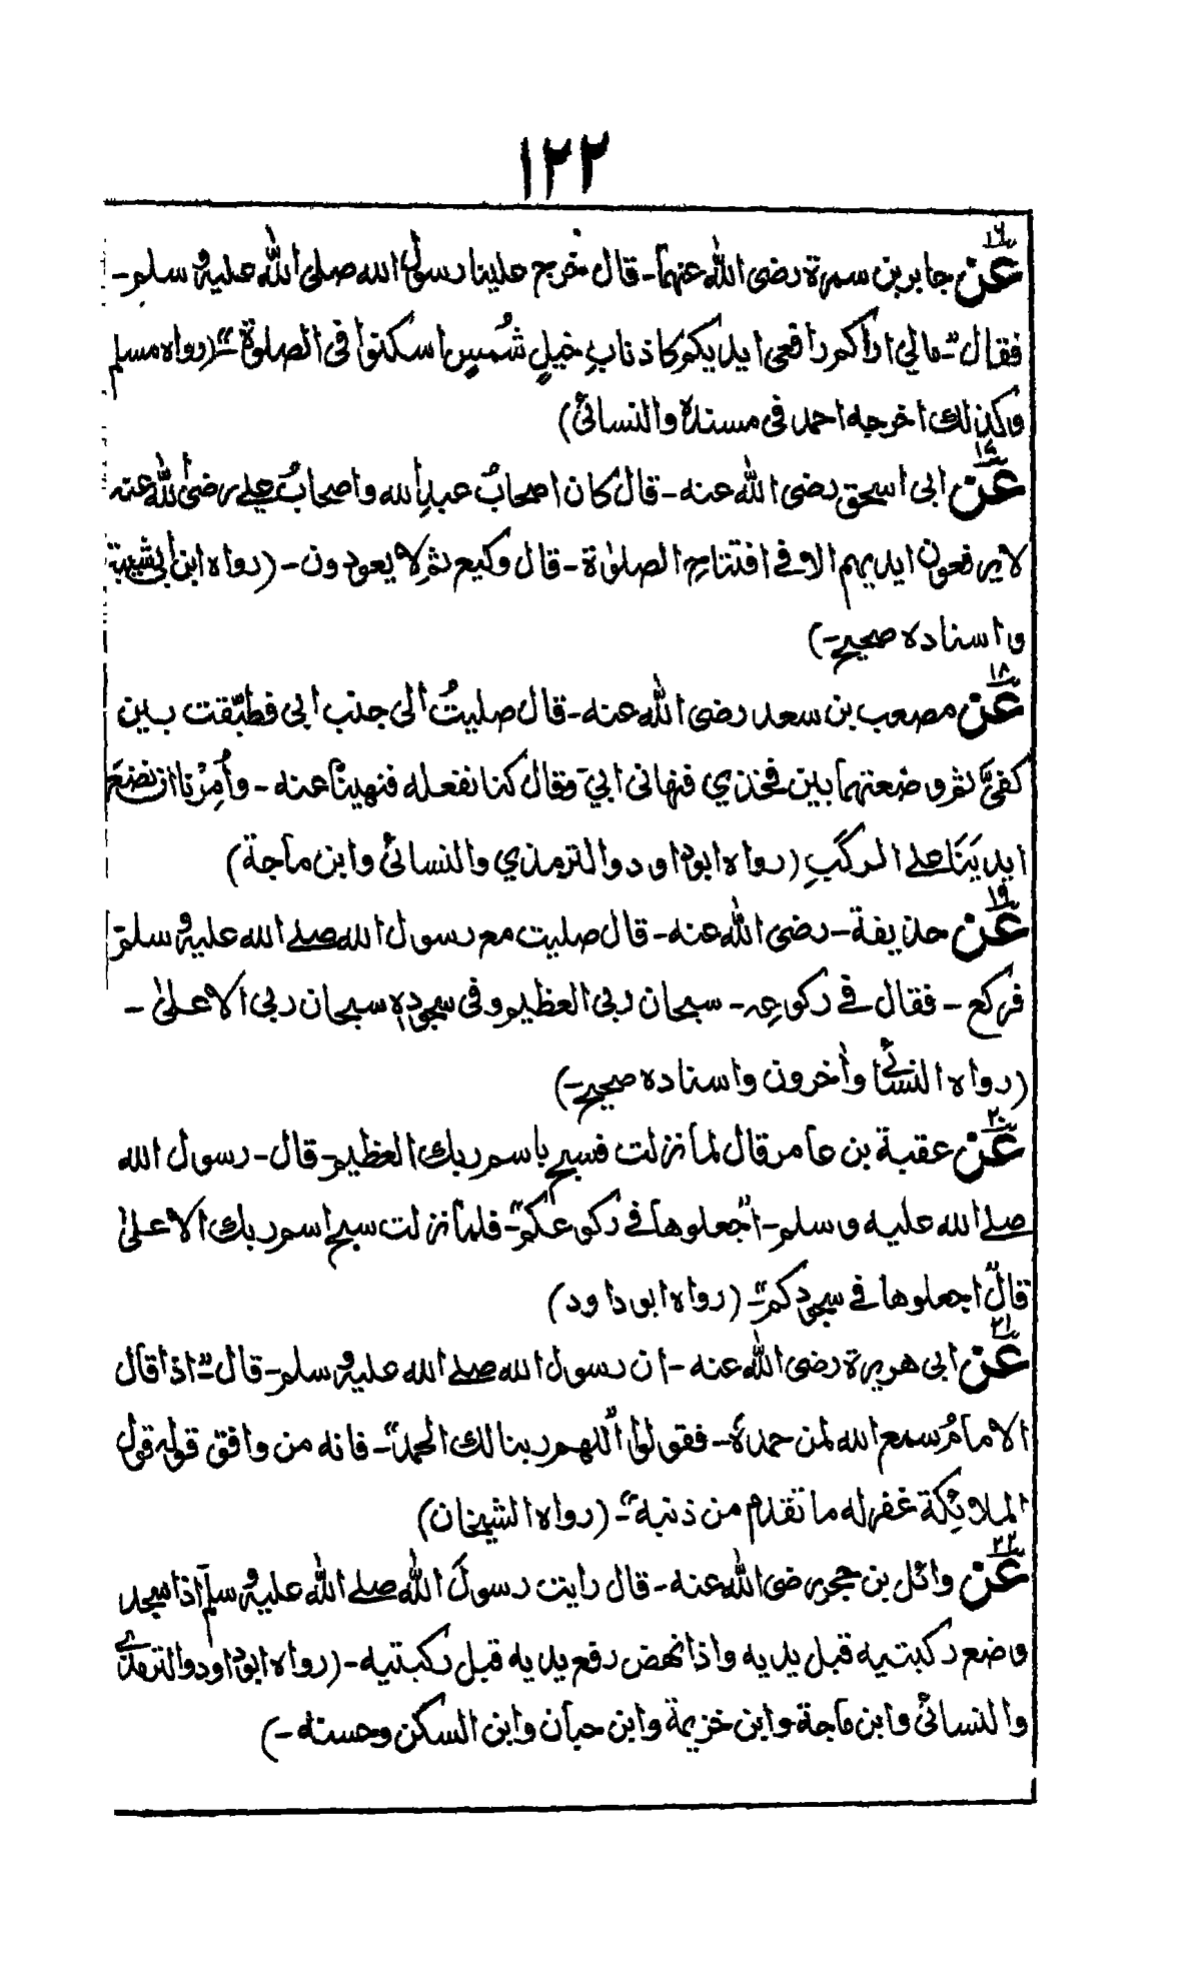 ١٢٢
١٦
عن جابر بن سمرة رضى الله عنهما - قال خرج علينا رسول الله صلى الله عليه وسلم -
فقال "مالي اراكم رافعى ايديكم كاذناب خيلٍ شُمسٍ اسكنوا فى الصلوة" - (رواه مسلم
وكذلك اخرجه احمد فى مسنده والنسائى)
١٧
عن ابى اسحق رضى الله عنه - قال كان اصحابُ عبدِ الله واصحابُ علے رضى الله عنه
لا يرفعون ايديهم الا فے افتتاحِ الصلوٰة - قال وكيع ثم لا يعودون - (رواه ابن ابى شيبة
واسناده صحيح -)
١٨
عن مصعب بن سعد رضى الله عنه - قال صليتُ الى جنب ابى فطبّقت بين
كفىَّ ثم وضعتهما بين فخذي فنهانى ابي وقال كنا نفعله فنهينا عنه - وأُمِرْنا ان نضعَ
ايديَنَا علے الركَبِ (رواه ابوداود والترمذي والنسائى وابن ماجة)
١٩
عن حذيفة - رضى الله عنه - قال صليت مع رسول الله صلے الله عليه وسلم
فركع - فقال فے ركوعه - سبحان ربى العظيم وفى سجوده سبحان ربى الاعلىٰ -
(رواه النسائى وأخرون واسناده صحيح -)
٢٠
عن عقبة بن عامر قال لما نزلت فسبح باسم ربك العظيم - قال - رسول الله
صلے الله عليه وسلم - "اجعلوها فے ركوعكم" - فلما نزلت سبح اسم ربك الاعلىٰ
قال "اجعلوها فے سجودكم" - (رواه ابوداود)
٢١
عن ابى هريرة رضى الله عنه - ان رسول الله صلے الله عليه وسلم - قال "اذا قال
الامامُ سمع الله لمن حمدهٗ - فقولوا اللهم ربنا لك الحمد" - فانه من وافق قوله قول
الملائكة غفرله ما تقدم من ذنبه" - (رواه الشيخان)
٢٢
عن وائل بن حجر رضى الله عنه - قال رايت رسول الله صلے الله عليه وسلم اذا سجد
وضع ركبتيه قبل يديه واذا نهض رفع يديه قبل ركبتيه - (رواه ابوداود والترمذى
والنسائى وابن ماجة وابن خزيمة وابن حبان وابن السكن وحسنه -)